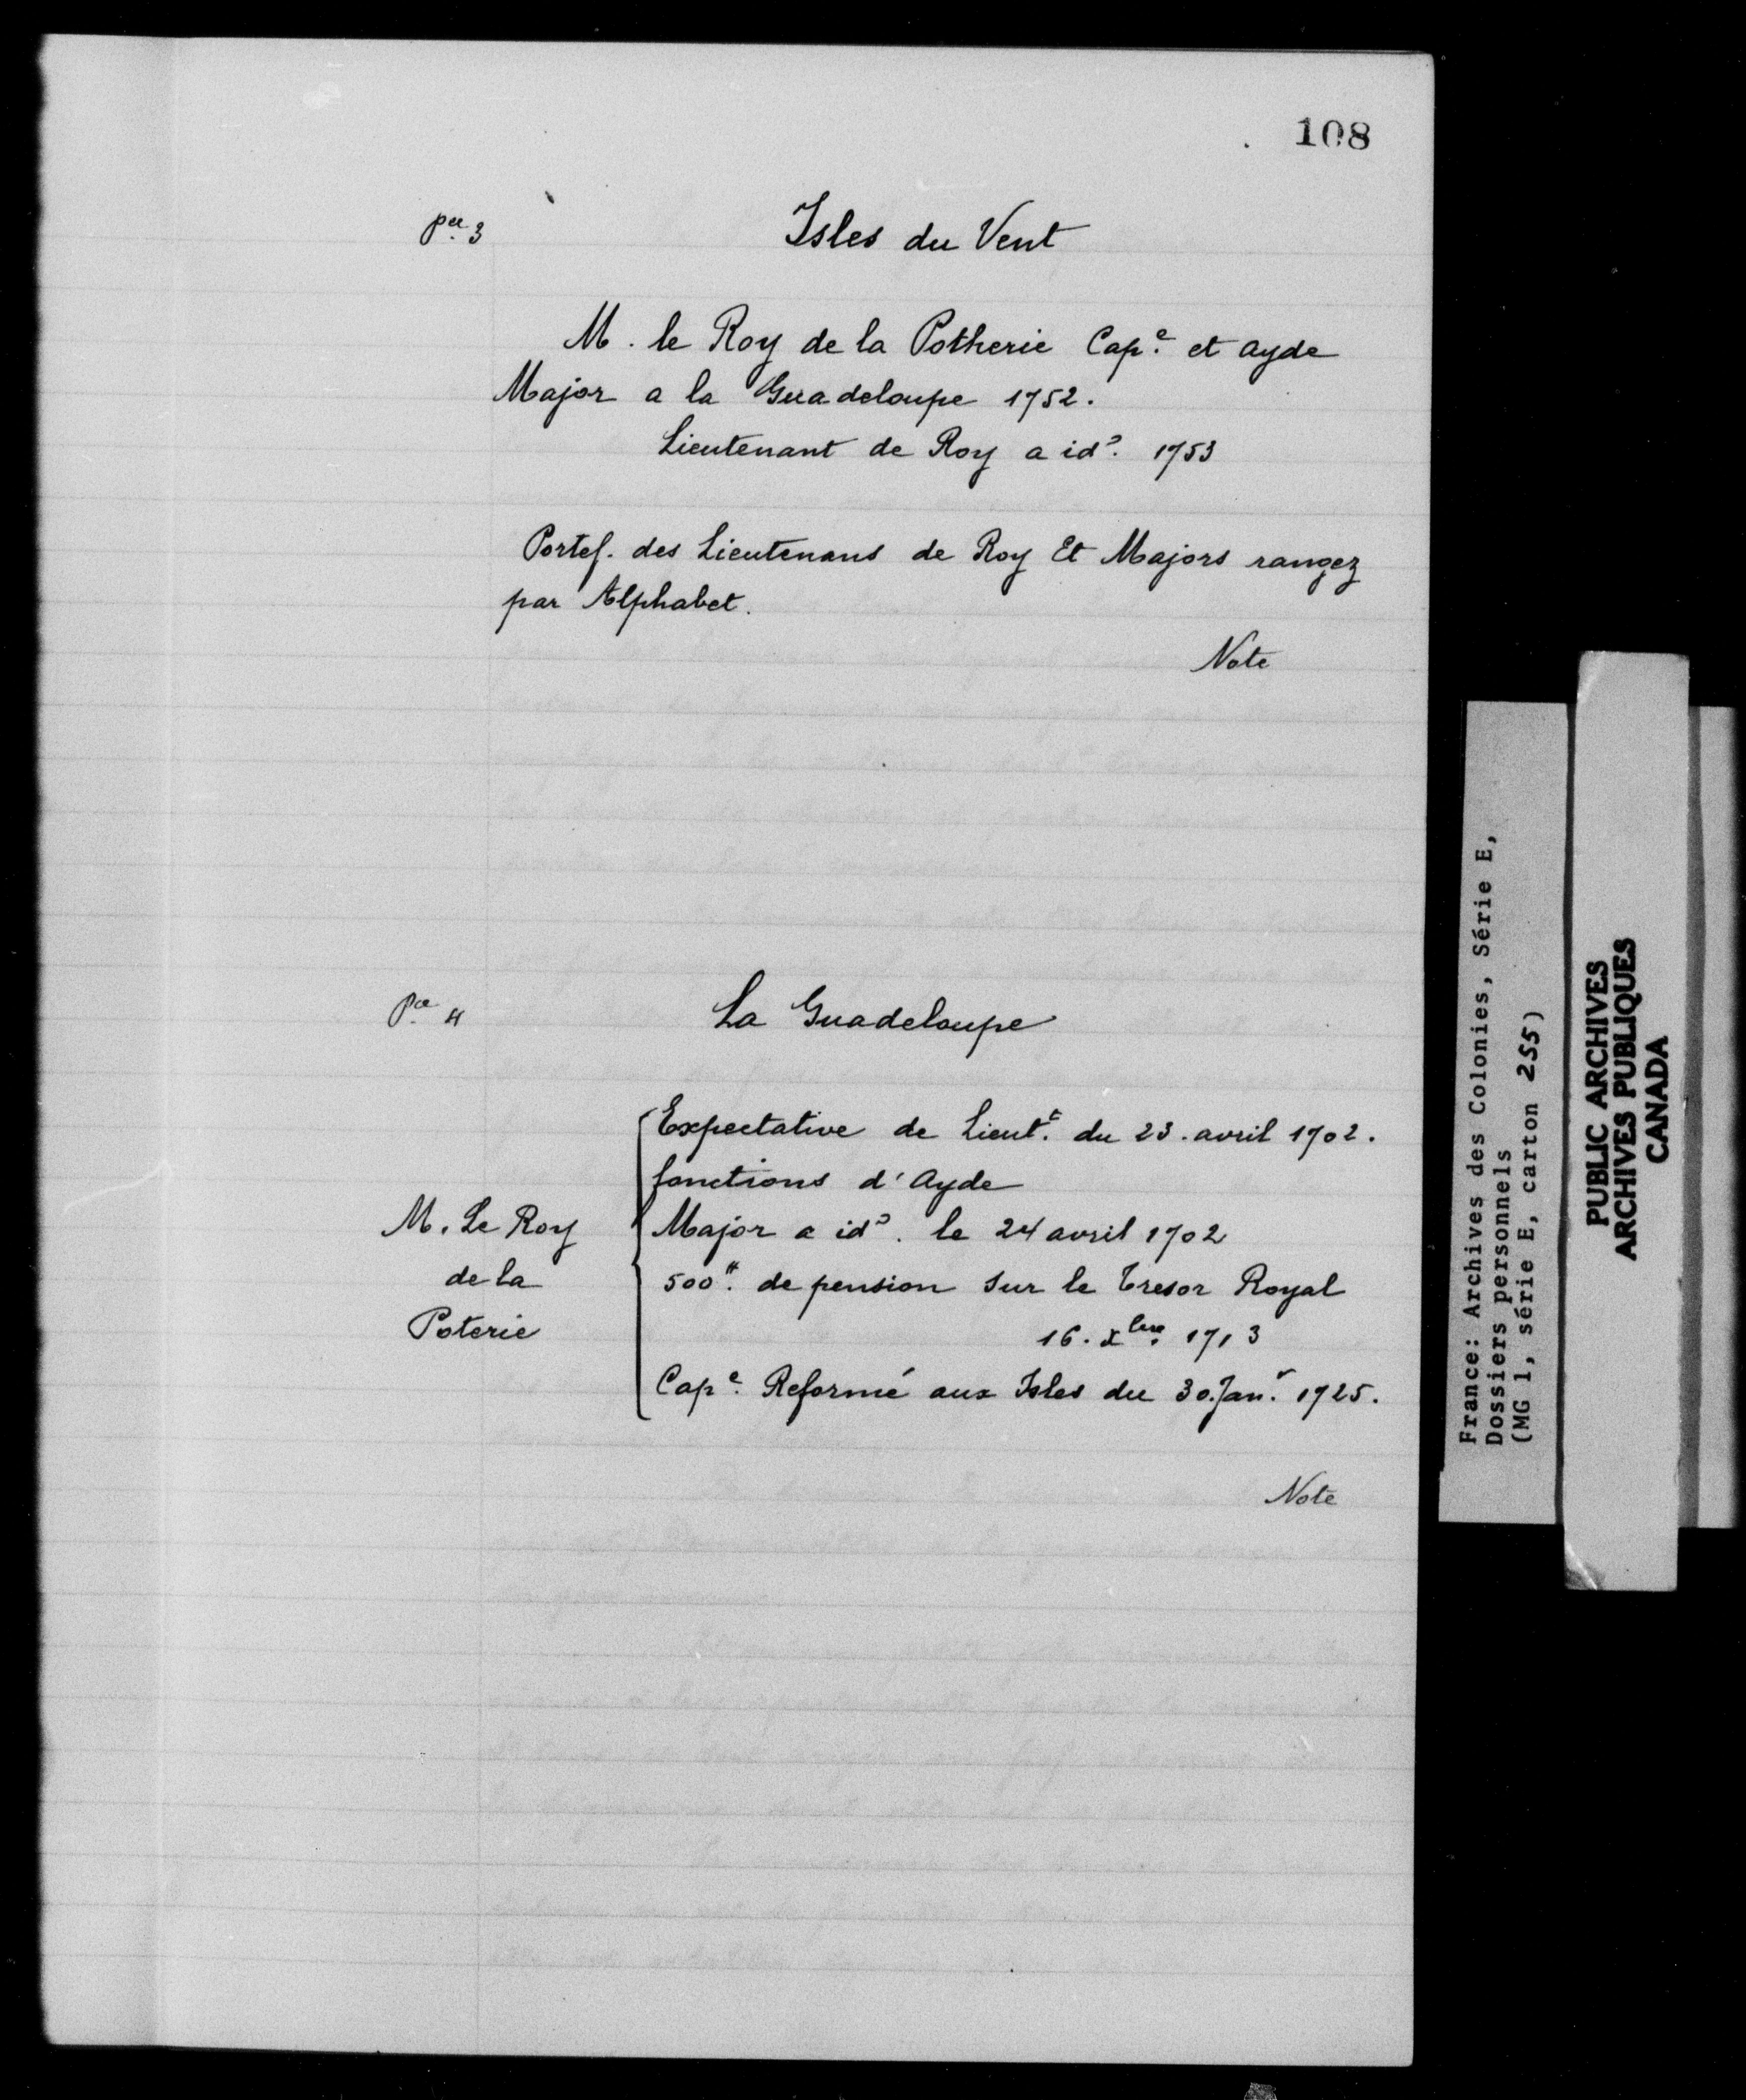 108
Pce 3
Isles du Vent
M. le Roy de la Potherie Cape. et ayde
Major a la Guadeloupe 1752.
Lieutenant de Roy a ido. 1753
Portef. des Lieutenans de Roy Et Majors rangez
par Alphabet.
Note
Pce 4
La Guadeloupe
M. Le Roy
de la
Poterie
Expectative de Lieut.t du 23. avril 1702.
fonctions d'Ayde
Major a ido. le 24 avril 1702
500#. de pension sur le Tresor Royal
16. xbre. 1713
Cape. Reformé aux Isles du 30. Janr. 1725.
Note
France: Archives des Colonies, Série E,
Dossiers personnels
(MG 1, série E, carton 255)
PUBLIC ARCHIVES
ARCHIVES PUBLIQUES
CANADA